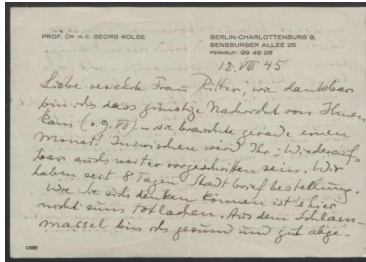 PROF. DR. H. C. GEORG KOLBE
BERLIN-CHARLOTTENBURG 9,
SENSBURGER ALLEE 26
FERNRUF: 99 49 28
12. VIII 45
Liebe verehrte Frau Ritter, wie dankbar
bin ich dass günstige Nachricht von Ihnen
kam (v. 9. VII) – sie brauchte gerade einen
Monat! Inzwischen wird Ihr Wiederauf-
bau auch weiter vorgeschritten sein. Wir
haben seit 8 Tagen Stadtbriefbestellung.
Wie Sie sich denken können ist's hier
nicht zum totlachen. Aus dem Schlam-
massel bin ich gesund und gut abge-